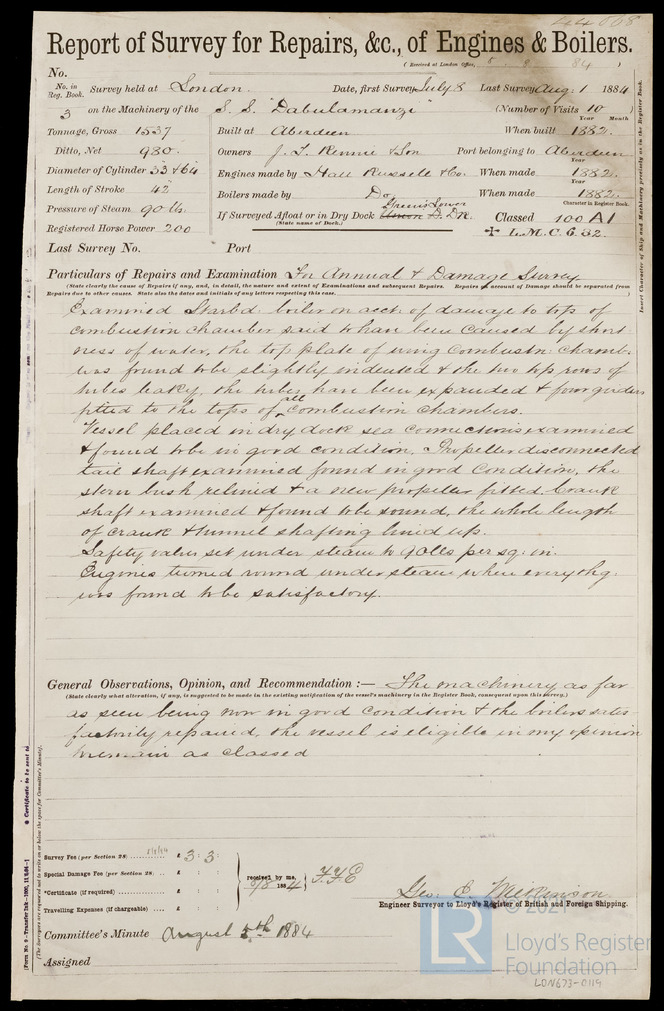 44068
Report of Survey for Repairs, &c., of Engines & Boilers.
(Received at London Office, 84)
No.
No. in Reg. Book. Survey held at London. Date, first Survey July 8 Last Survey Aug: 1 1884
3 on the Machinery of the S. S. "Dabulamanzi" (Number of Visits 10)
Year Month
Tonnage, Gross 1537 Built at Aberdeen When built 1882.
Ditto, Net 980. Owners J. T. Rennie & Son Port belonging to Aberdeen
Year
Diameter of Cylinder 33 & 64 Engines made by Hall Russell & Co. When made 1882.
Year
Length of Stroke 42 Boilers made by Do When made 1882.
Pressure of Steam 90 lb. Green's Lower Character in Register Book.
If Surveyed Afloat or in Dry Dock Union D. D.K. Classed 100 A1
(State name of Dock.)
Registered Horse Power 200 ✠ L.M.C. 6.82.
Last Survey No. Port
Particulars of Repairs and Examination For Annual & Damage Survey
(State clearly the cause of Repairs if any, and, in detail, the nature and extent of Examinations and subsequent Repairs. Repairs on account of Damage should be separated from
Repairs due to other causes. State also the dates and initials of any letters respecting this case.)
Examined Starbd boiler on acct of damage to top of
combustion chamber said to have been caused by short
ness of water, the top plate of wing combustn chambr
was found to be slightly indented & the two top rows of
tubes leaky, the tubes have been expanded & four girders
fitted to the tops of all combustion chambers.
Vessel placed in dry dock sea connections examined
& found to be in good condition, Propeller disconnected
tail shaft examined found in good condition, the
stern bush relined & a new propeller fitted. Crank
shaft examined & found to be sound, the whole length
of crank & tunnel shafting lined up.
Safety valves set under steam to 90 lbs per sq. in.
Engines turned round under steam when everythg.
was found to be satisfactory.
General Observations, Opinion, and Recommendation :— The machinery as far
(State clearly what alteration, if any, is suggested to be made in the existing notification of the vessel's machinery in the Register Book, consequent upon this survey.)
as seen being now in good condition & the boilers satis
factorily repaired, the vessel is eligible in my opinion
to remain as classed
Survey Fee (per Section 28) £ 3 : 3 :
Special Damage Fee (per Section 28) £ : :
received by me,
5/8 1884
*Certificate (if required) £ : :
Travelling Expenses (if chargeable) £ : :
Geo. E.
Engineer Surveyor to Lloyd's Register of British and Foreign Shipping.
Committee's Minute August 5th 1884
Assigned
Insert Character of Ship and Machinery precisely as in the Register Book.
* Certificate to be sent to
(The Surveyors are requested not to write on or below the space for Committee's Minute).
© 2021
LR
Lloyd's Register
Foundation
LON673-0119